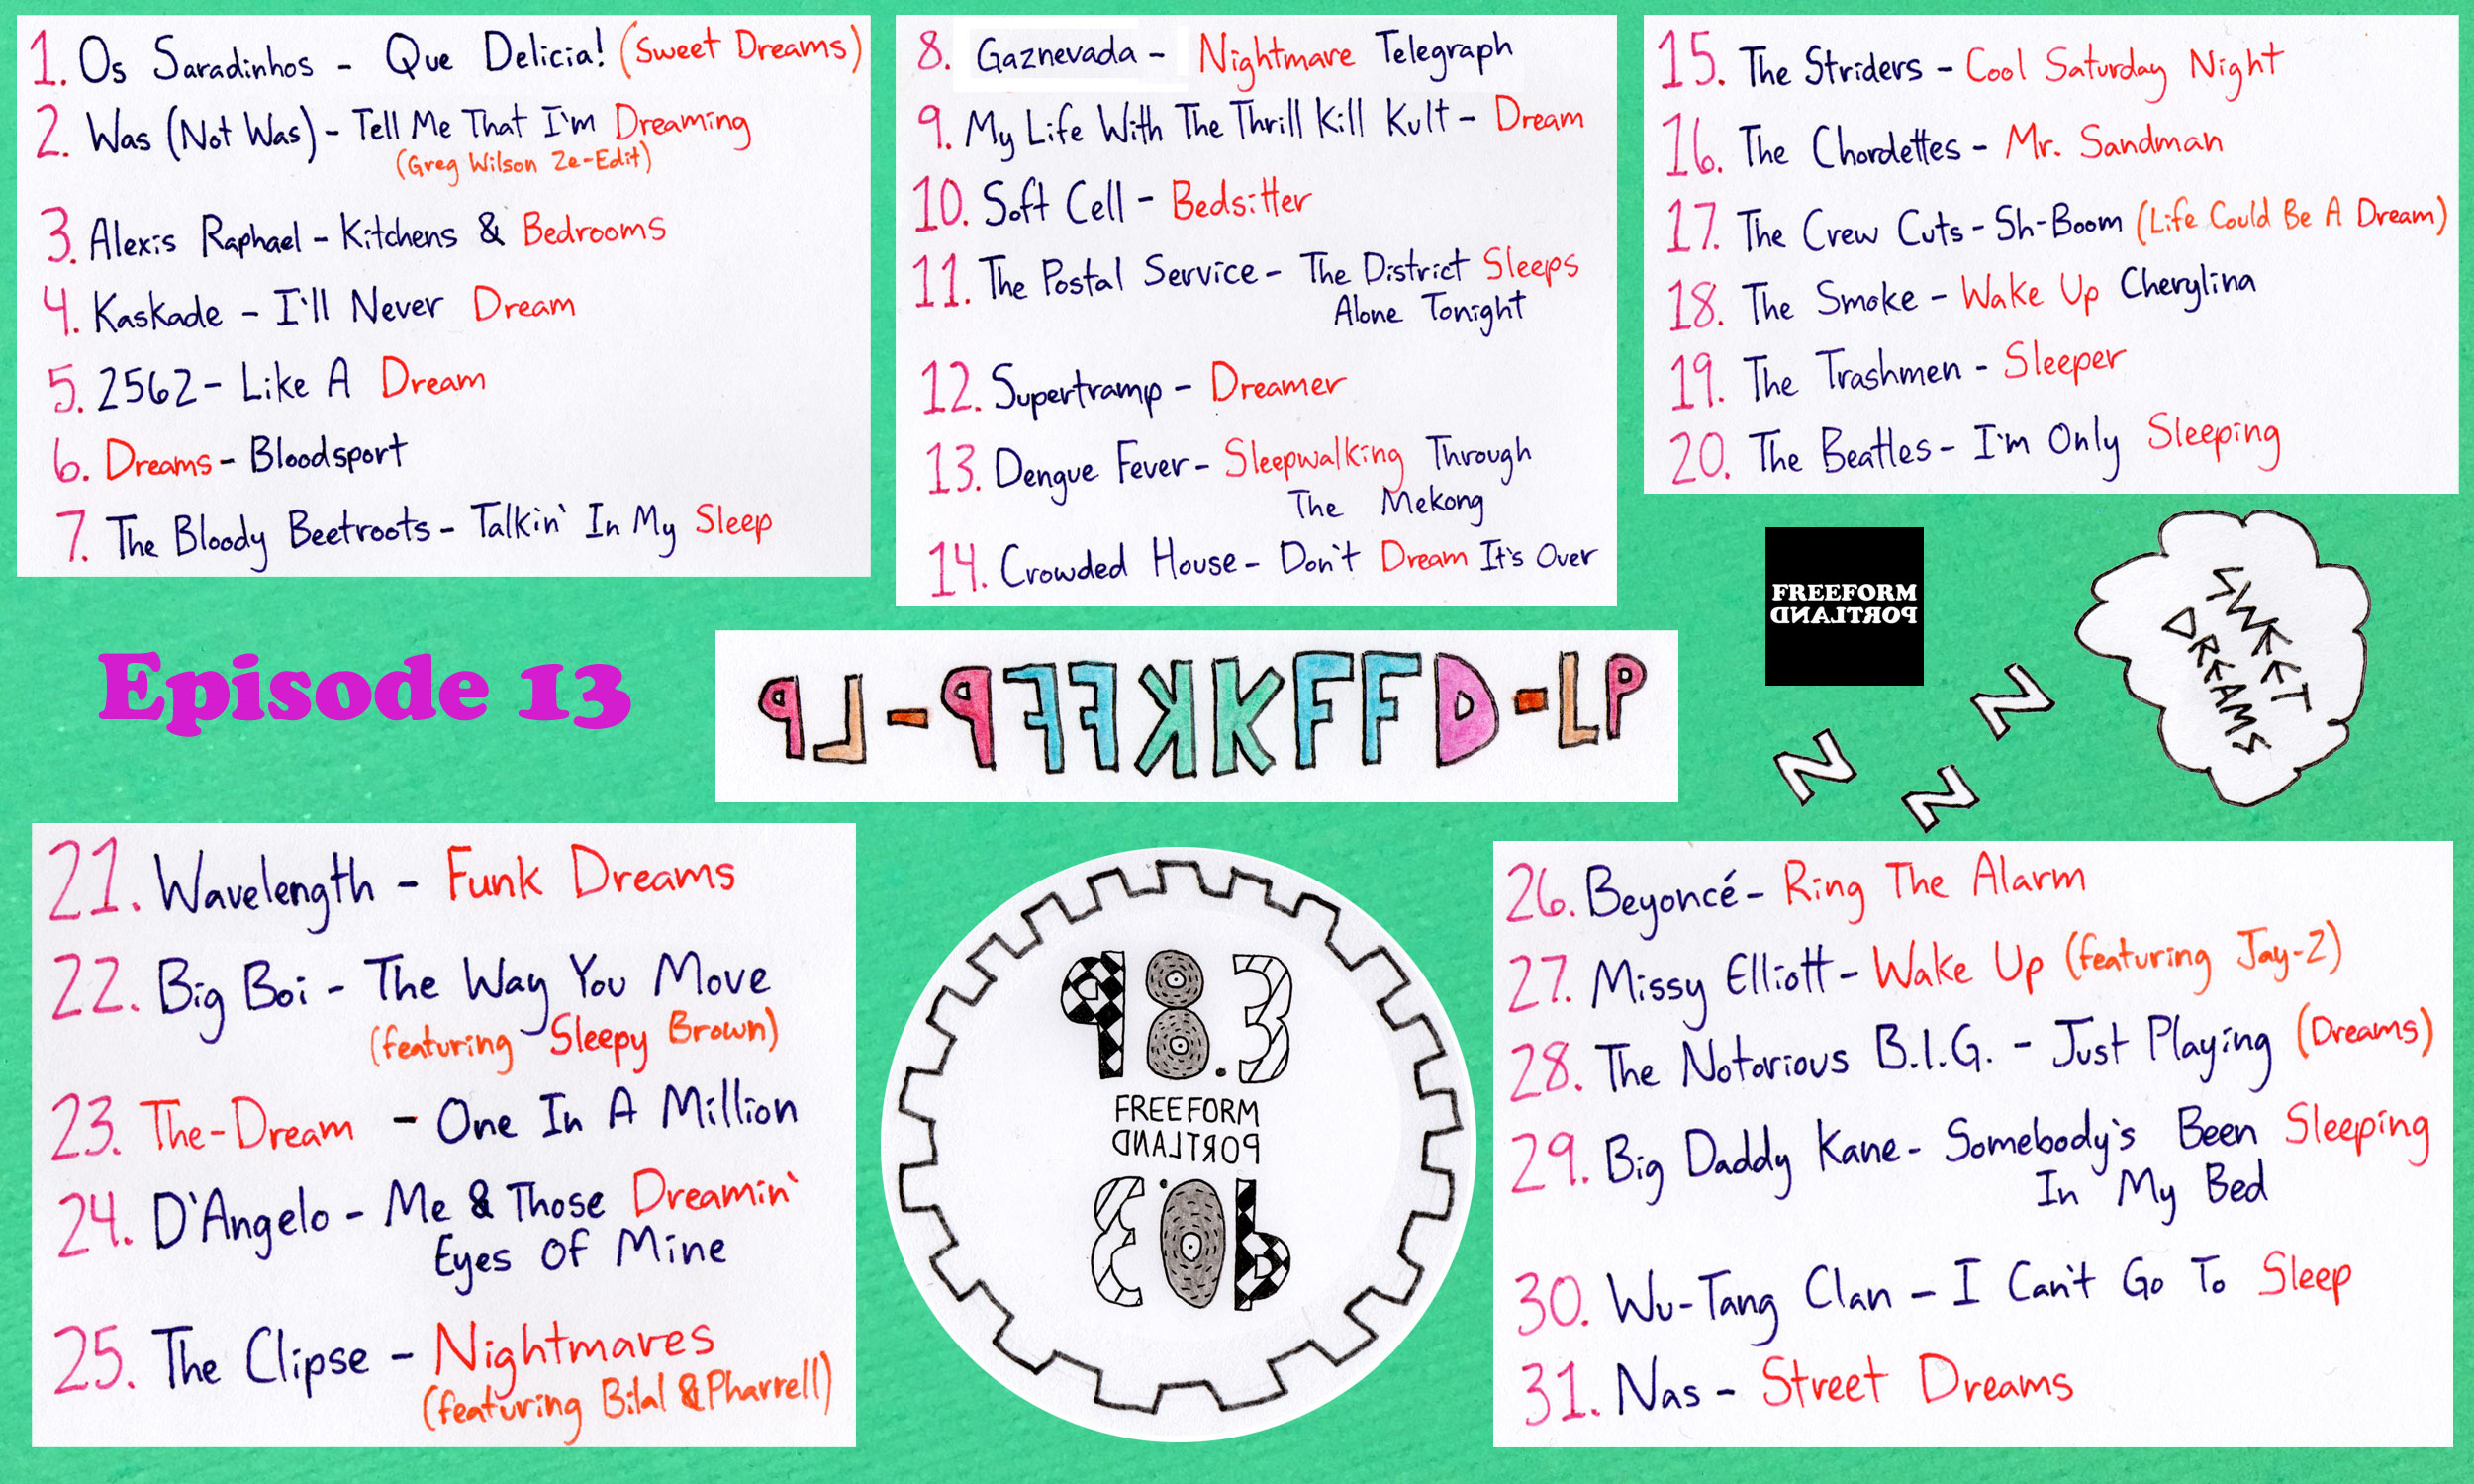 1. Os Saradinhos - Que Delicia! (Sweet Dreams)
2. Was (Not Was) - Tell Me That I'm Dreaming
(Greg Wilson Ze-Edit)
3. Alexis Raphael - Kitchens & Bedrooms
4. Kaskade - I'll Never Dream
5. 2562 - Like A Dream
6. Dreams - Bloodsport
7. The Bloody Beetroots - Talkin' In My Sleep
8. Gaznevada - Nightmare Telegraph
9. My Life With The Thrill Kill Kult - Dream
10. Soft Cell - Bedsitter
11. The Postal Service - The District Sleeps
Alone Tonight
12. Supertramp - Dreamer
13. Dengue Fever - Sleepwalking Through
The Mekong
14. Crowded House - Don't Dream It's Over
15. The Striders - Cool Saturday Night
16. The Chordettes - Mr. Sandman
17. The Crew Cuts - Sh-Boom (Life Could Be A Dream)
18. The Smoke - Wake Up Cherylina
19. The Trashmen - Sleeper
20. The Beatles - I'm Only Sleeping
FREEFORM
PORTLAND
SWEET
DREAMS
Z Z Z
Episode 13
PL-PFFKKFFD-LP
21. Wavelength - Funk Dreams
22. Big Boi - The Way You Move
(featuring Sleepy Brown)
23. The-Dream - One In A Million
24. D'Angelo - Me & Those Dreamin'
Eyes Of Mine
25. The Clipse - Nightmares
(featuring Bilal & Pharrell)
98.3
FREEFORM
PORTLAND
90.3
26. Beyoncé - Ring The Alarm
27. Missy Elliott - Wake Up (featuring Jay-Z)
28. The Notorious B.I.G. - Just Playing (Dreams)
29. Big Daddy Kane - Somebody's Been Sleeping
In My Bed
30. Wu-Tang Clan - I Can't Go To Sleep
31. Nas - Street Dreams